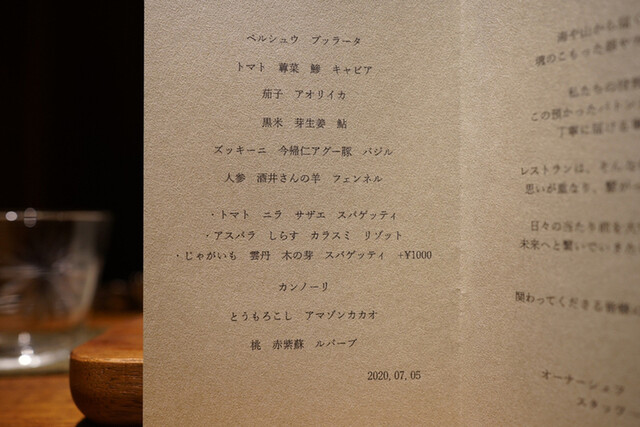 ペルシュウ ブッラータ
トマト 蓴菜 鯵 キャビア
茄子 アオリイカ
黒米 芽生姜 鮎
ズッキーニ 今帰仁アグー豚 バジル
人参 酒井さんの羊 フェンネル
・トマト ニラ サザエ スパゲッティ
・アスパラ しらす カラスミ リゾット
・じゃがいも 雲丹 木の芽 スパゲッティ +¥1000
カンノーリ
とうもろこし アマゾンカカオ
桃 赤紫蘇 ルバーブ
2020.07.05
海や山から届
魂のこもった
私たちの
この預かったバトン
丁寧に届ける
レストランは、そんな
思いが重なり、
日々の当たり前を大
未来へと繋いでいきた
関わってくださる皆様
オーナーシェフ
スタッフ